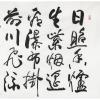 日照香爐
生紫煙遙
看瀑布掛
前川飛流